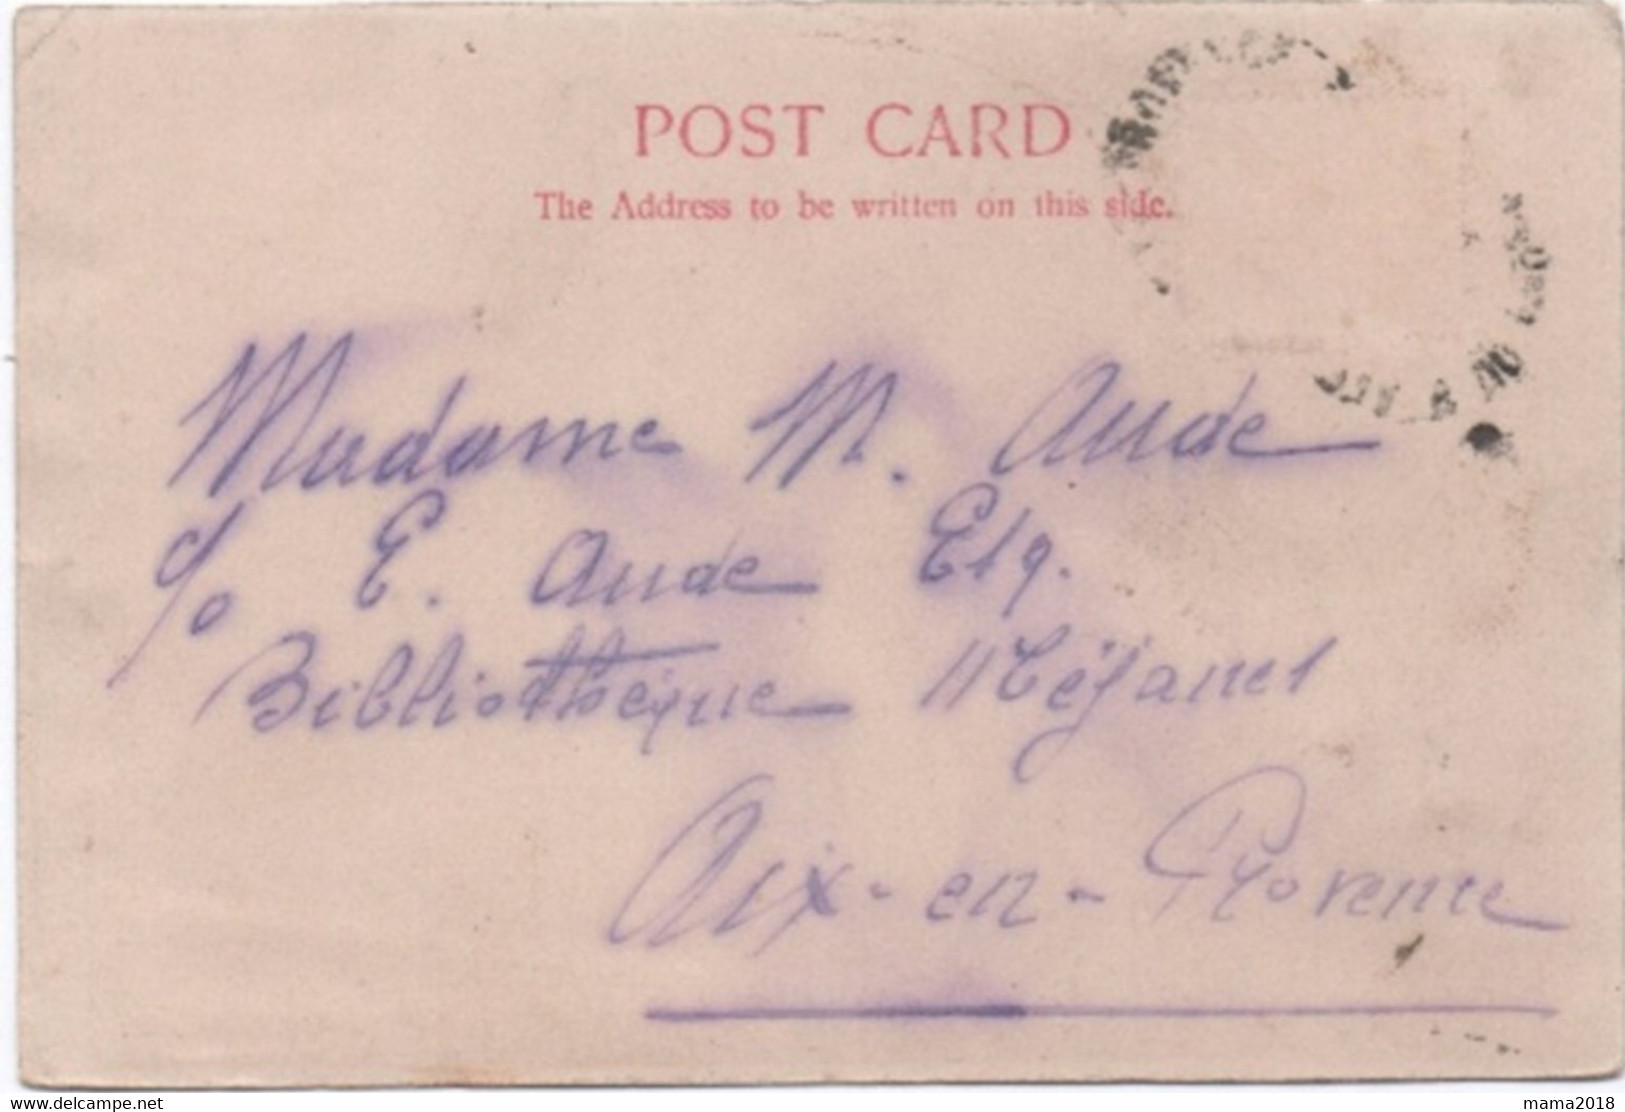 POST CARD
The Address to be written on this side.
Madame M. Aude
c/o E. Aude Esq.
Bibliothèque Méjanes
Aix-en-Provence
www.delcampe.net
mama2018